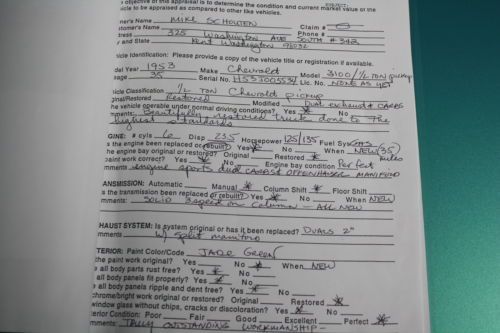 objective of this appraisal is to determine the condition and current market value or the
icle to be appraised as compared to other like vehicles.
mer's Name MIKE SCHOUTEN Claim #
stomer's Name Phone #
ress 325 Washington AVE SOUTH # 342
y and State Kent Washington 98032
hicle Identification: Please provide a copy of the vehicle title or registration if available.
del Year 1953 Make Chevrolet Model 3100/½ TON pickup
eage 35 Serial No. Lic. No. NONE AS YET
hicle Classification ½ TON Chevrolet pickup
ginal/Restored Restored Modified Dual exhaust & CARBS
he vehicle operable under normal driving conditions? Yes No
mments: Beautifully restored truck done to the
highest standards
GINE: # cyls 6 Disp 235 Horsepower 125/135 Fuel Sys GAS
s the engine been replaced or rebuilt? Yes No When NEW (35) miles
he engine bay original or restored? Original Restored
paint work correct? Yes No Engine bay condition Perfect
mments engine sports dual CARBS & OFFENHAUSER MANIFOLD
ANSMISSION: Automatic Manual Column Shift Floor Shift
s the transmission been replaced or rebuilt? Yes No When NEW
mments: SOLID 3 speed on Column - ALL NEW
HAUST SYSTEM: Is system original or has it been replaced? DUALS 2"
mments W/ split manifold
TERIOR: Paint Color/Code JADE GREEN
the paint work original? Yes No When NEW
e all body parts rust free? Yes No
e all body panels fit properly? Yes No
e all body panels ripple and dent free? Yes No
chrome/bright work original or restored? Original Restored
window glass without chips, cracks or discoloration? Yes No
terior Condition: Poor Fair Good Excellent Perfect
mments: TRULY OUTSTANDING WORKMANSHIP -